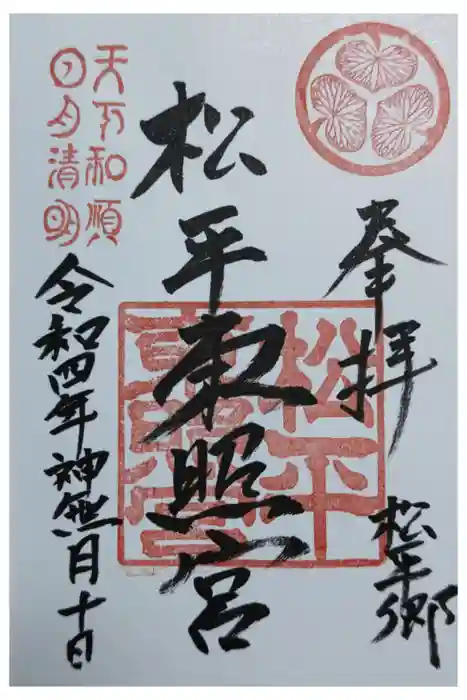 奉拝
松平郷
松平東照宮
松平
東照宮
天下和順
日月清明
令和四年神無月十日